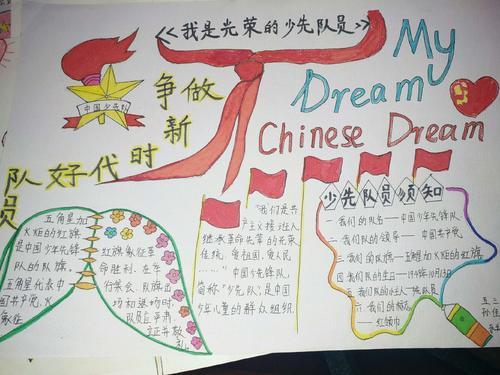 《我是光荣的少先队员》
My
Dream
Chinese Dream
中国少先队
争做
新
时代好队员
五角星加
火炬的红旗
是中国少年先锋
队的队旗,
五角星代表中
国共产党,火
象征
红旗象征革
命胜利.在举
行集会、队旗
坊和退场时
队员应平肩
立正并敬
礼
"我们是共
产主义接班人
继承革命先辈的光荣
传统,爱祖国,爱人民
……"中国少先队,
简称"少先队",是中国
少年儿童的群众组织.
少先队员须知
一我们的队名——中国少年先锋队
二我们队的领导——中国共产党.
三我们的队旗——五角星加火炬的红旗
四我们队的生日——1949年10月13日
五我们队的主人一般队员
六:我们的标志
——红领巾